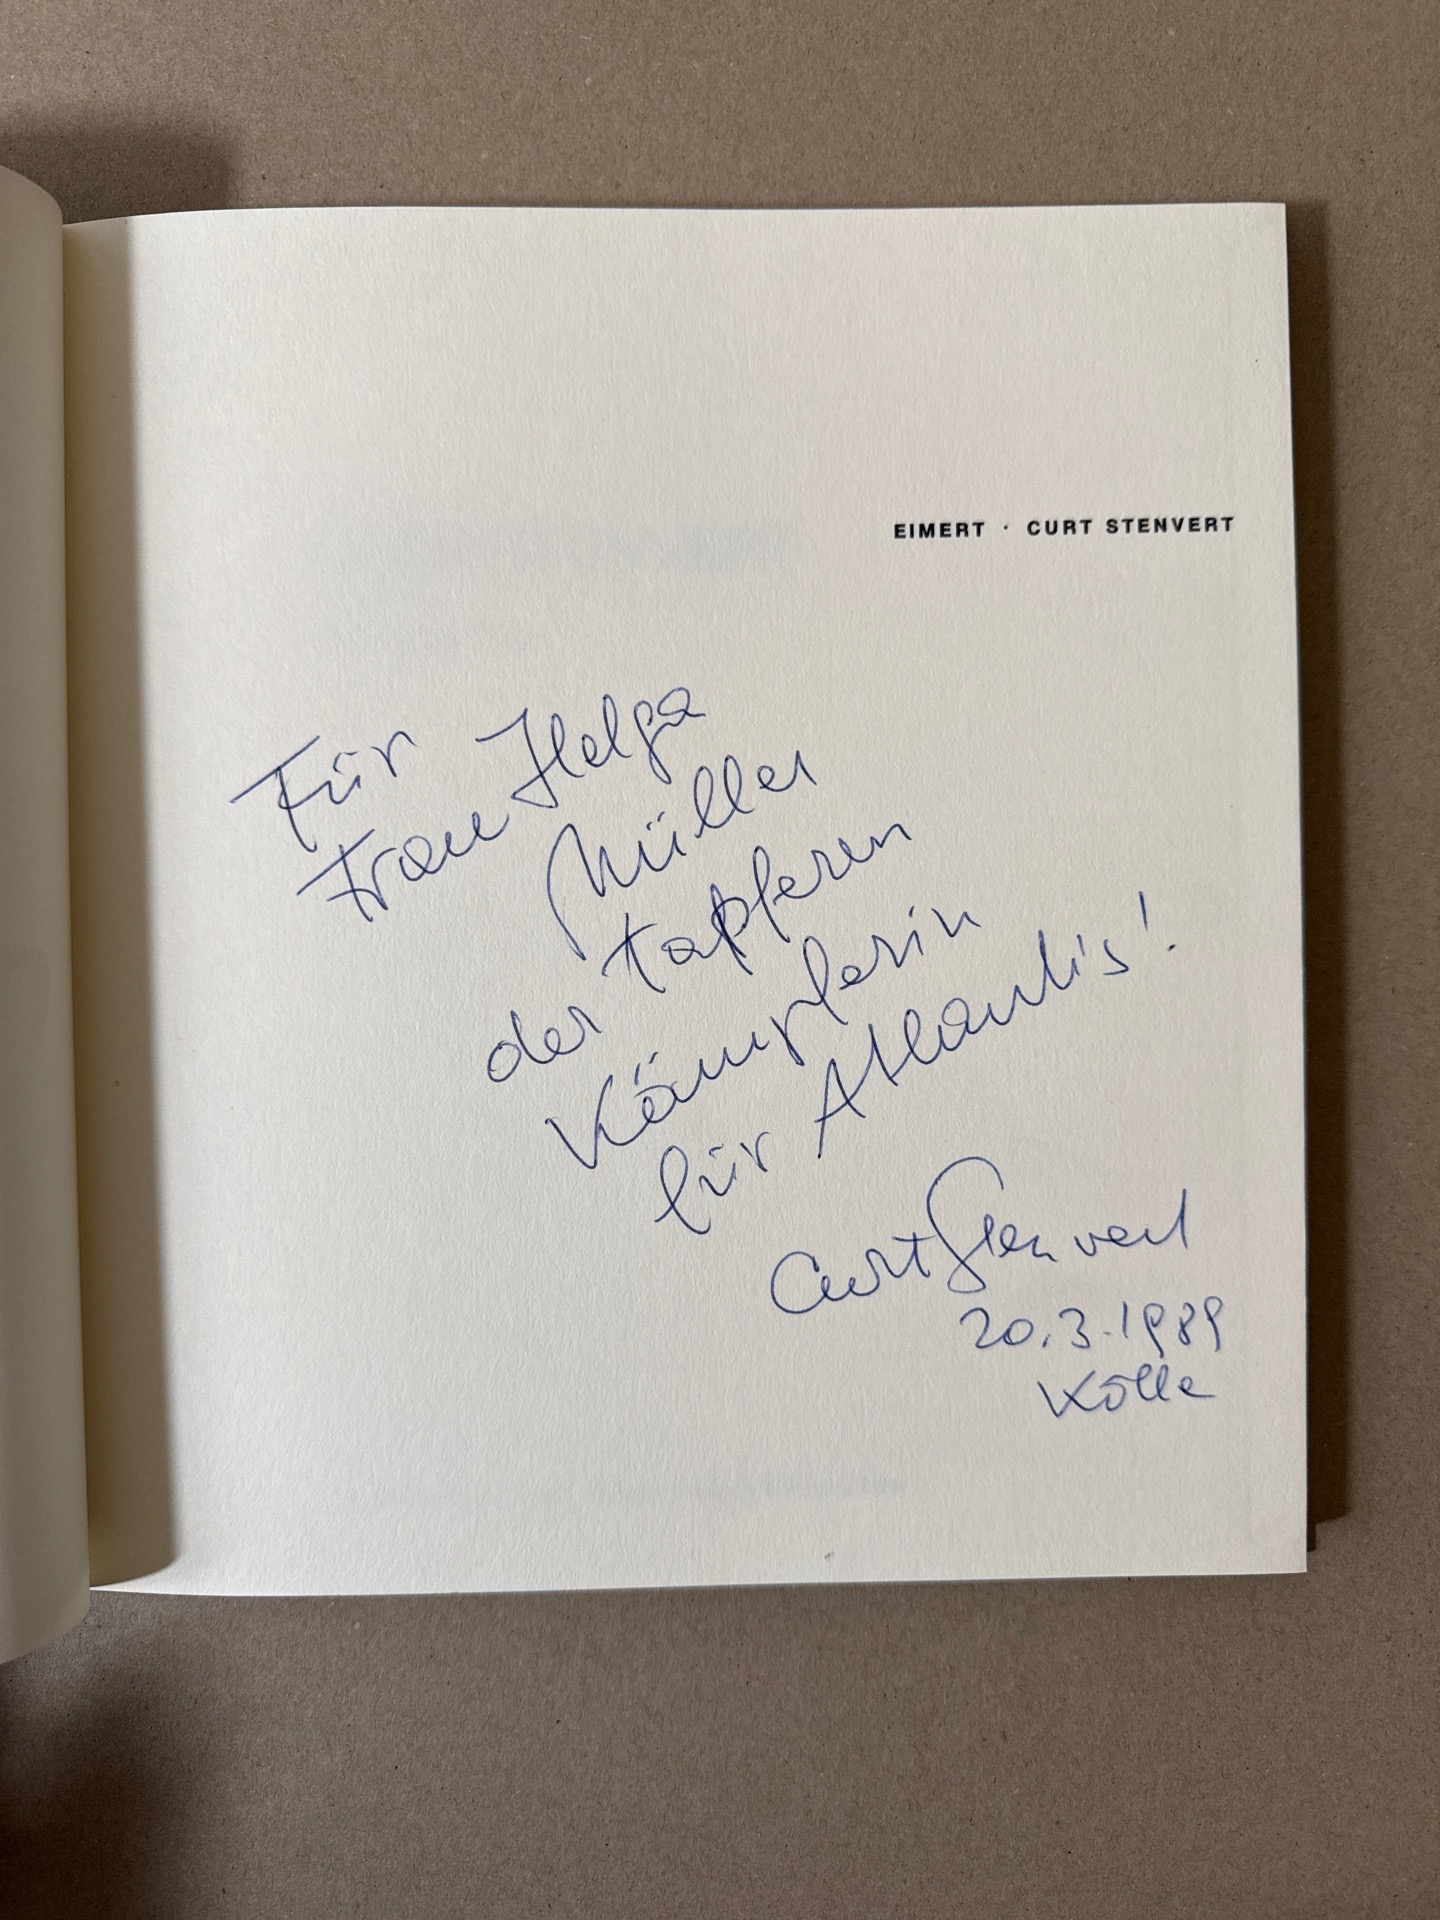 EIMERT · CURT STENVERT
Für
Frau Helga
Müller
der tapferen
Kämpferin
für Atlantis!
Curt Stenvert
20.3.1989
Kölle